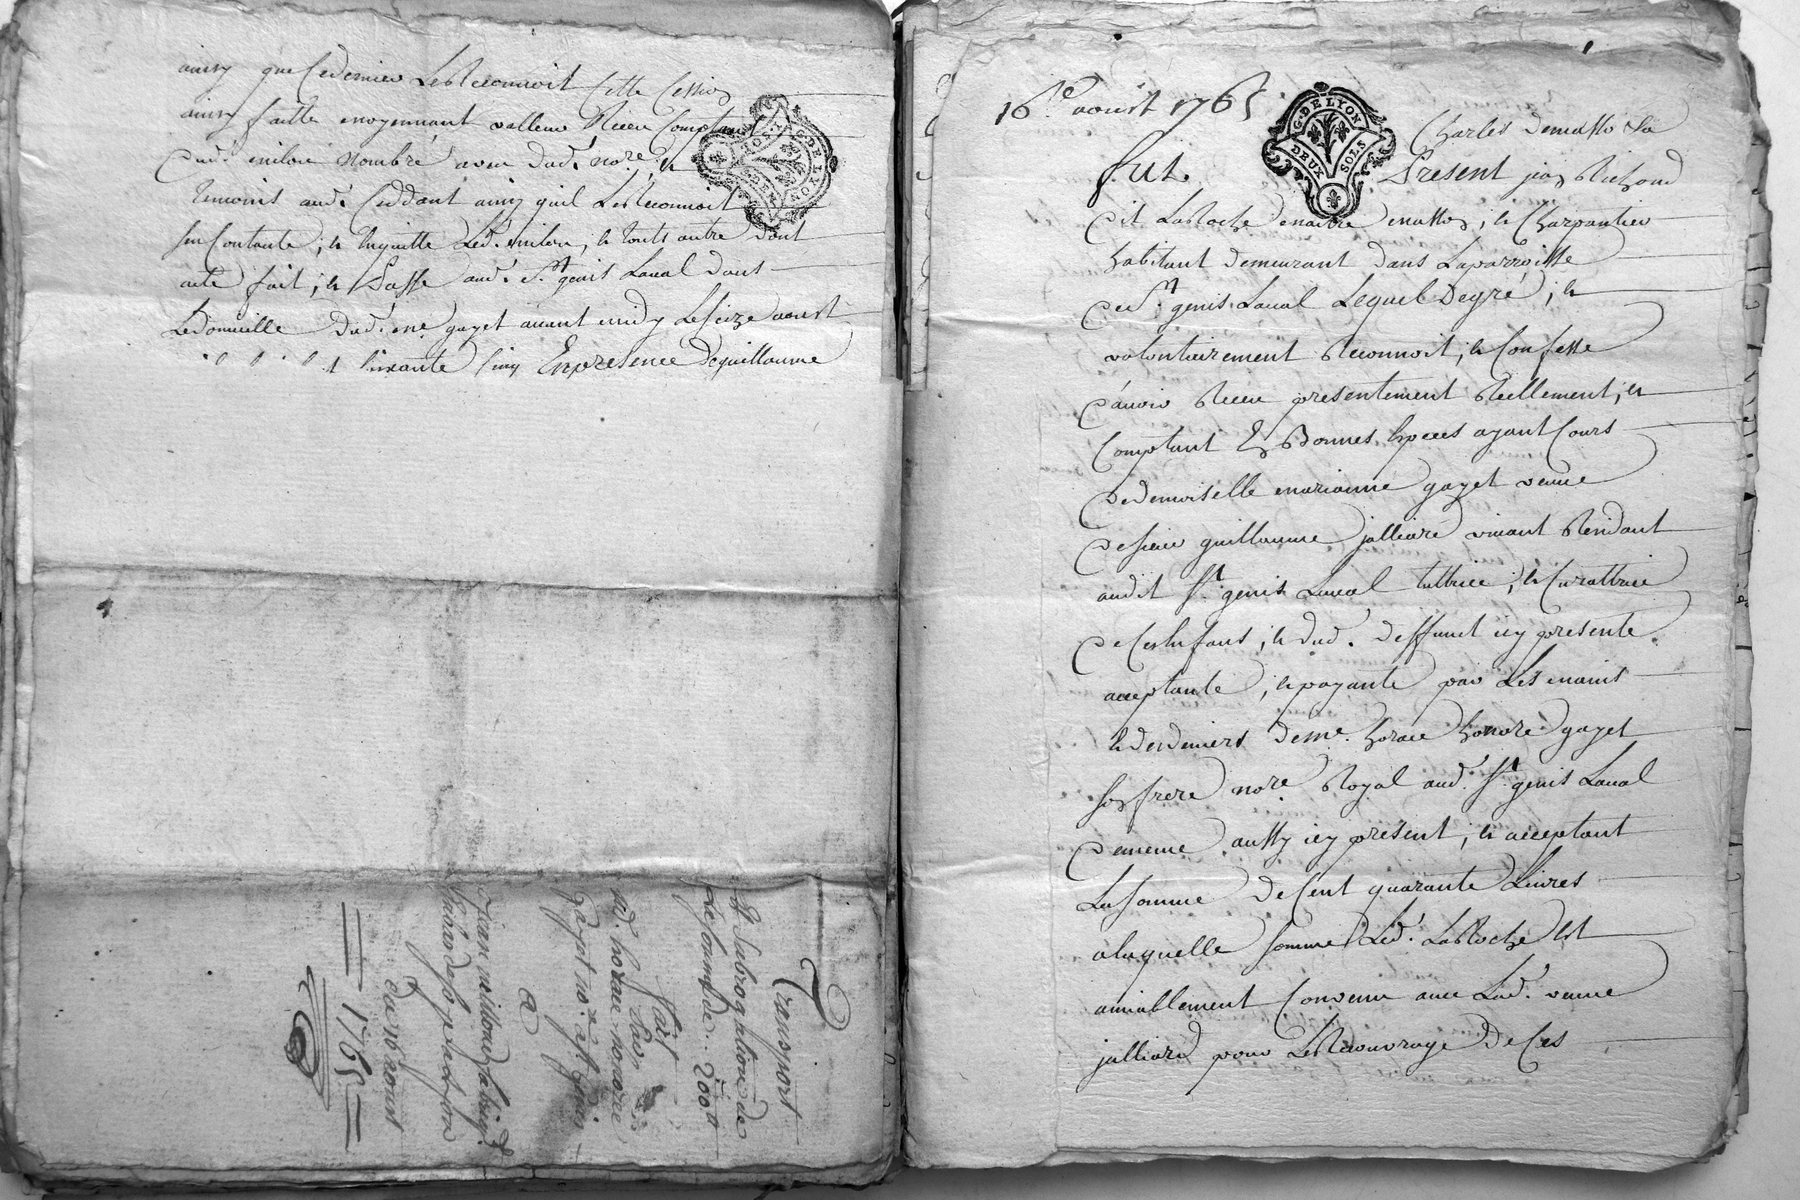 ainsy que Ce dernier Le Reconnoit Cette Cession
ainsy faitte moyennant valleur Receu Comptant
dud. milou nombré a veu dud. nore. et
temoins aud. Ceddant ainsy quil Le Reconnoit
sen Contante, et en quitte Led. milou, et touts autre dont
acte fait, et Passé aud. St. genis Laual dans
Le Domicille dud. me. gayet auant midy Le seize aoust
soixante Cinq En presence de guillaume
Transport
et Subrogations de
La somme de .. 2000
fait
Par
sr. horace honoré
gayet no. a st. genis
a
Jean millou
1765
du 16 aoust
16e. aoust 1765
G. DE LYON
DEUX SOLS
Charles
fut Present jean Richoud
dit La Roche maitre masson, et Charpantier
habitant demeurant dans La parroisse
de St. genis Laual Lequel De gré, et
volontairement Reconnoit, et Confesse
d'auoir Receu presentement Reellement, et
Comptant En Bonnes Especes ayant Cours
de demoiselle marianne gayet veuue
de sieur guillaume jalliard viuant Rendant
audit St. genis Laual tuttrice, et Curattrice
de Ces Enfans, et dud. deffunct icy presente
acceptante, et payante par Les mains
et deniers de me. horace honoré gayet
son frere nore. Royal aud. St. genis Laual
de meme aussy icy present, et acceptant
La somme de Cent quarante Liures
a laquelle somme Led. La Roche Est
amiablement Conuenu auec Lad. veuue
jalliard pour Les de Ces